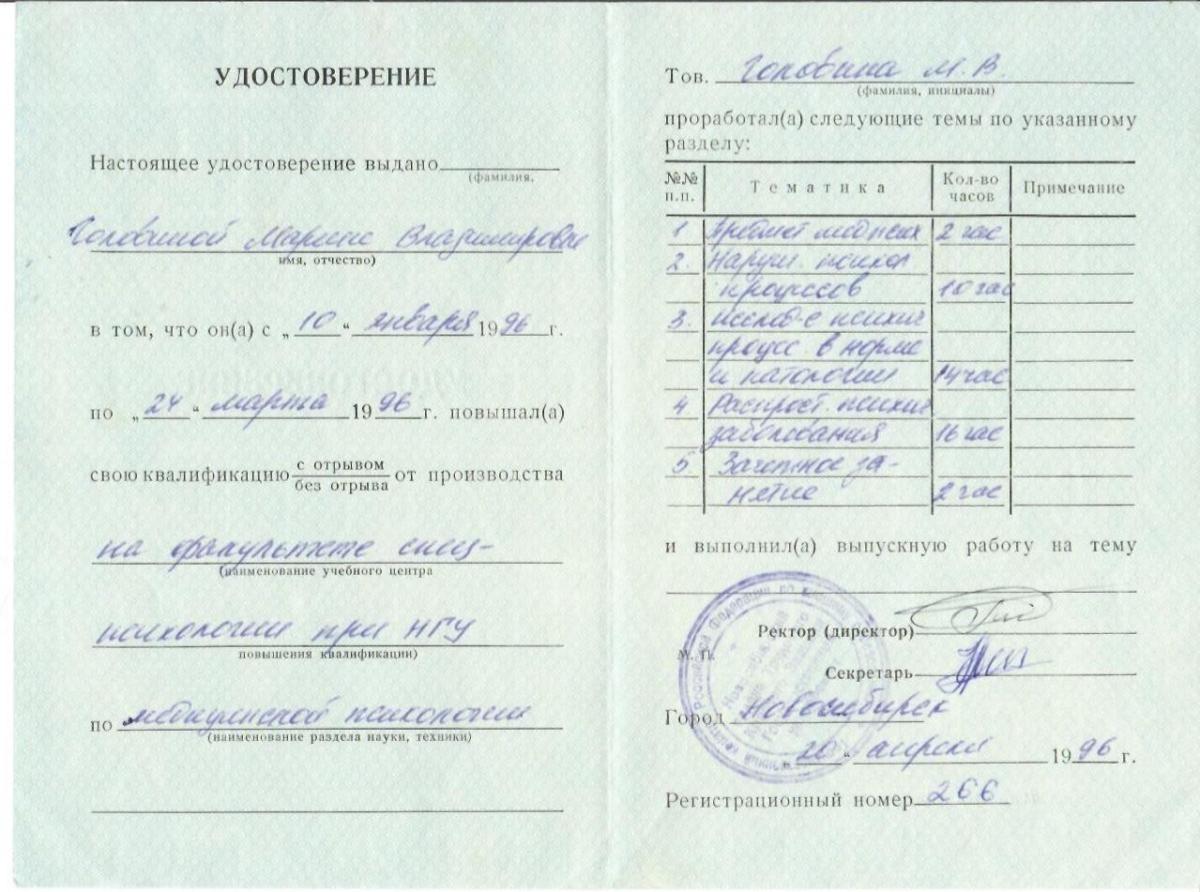 УДОСТОВЕРЕНИЕ
Настоящее удостоверение выдано
(фамилия,
Головиной Марине Владимировне
имя, отчество)
в том, что он(а) с „10“ января 1996 г.
по „24“ марта 1996 г. повышал(а)
свою квалификацию с отрывом от производства
без отрыва
на факультете спец-
(наименование учебного центра
психологии при НГУ
повышения квалификации)
по медицинской психологии
(наименование раздела науки, техники)
Тов. Головина М. В.
(фамилия, инициалы)
проработал(а) следующие темы по указанному
разделу:
№№ п.п. Тематика Кол-во часов Примечание
1 Предмет медпсих 2 час
2. Наруш. психол
процессов 10 час
3. Исслед-е психич
процес. в норме
и патологии 14 час
4 Распрост. психич
заболевания 16 час
5 Зачетное за-
нятие 2 час
и выполнил(а) выпускную работу на тему
Ректор (директор)
М. П.
Секретарь
Город Новосибирск
„20“ апреля 1996 г.
Регистрационный номер 266